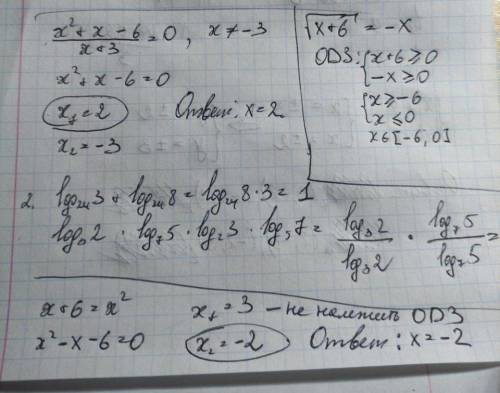 x²+x-6/x+3 = 0, x≠-3
x²+x-6=0
x₁=2 Ответ: x=2.
x₂=-3
√x+6 = -x
ОДЗ: {x+6≥0
{-x≥0
{x≥-6
{x≤0
x∈[-6,0]
2. log₂₄3 + log₂₄8 = log₂₄8·3 = 1
log₃2 · log₇5 · log₂3 · log₅7 = log₃2/log₃2 · log₇5/log₇5 =
x+6=x² x₁=3 - не належить ОДЗ
x²-x-6=0 x₂=-2 Ответ: x=-2